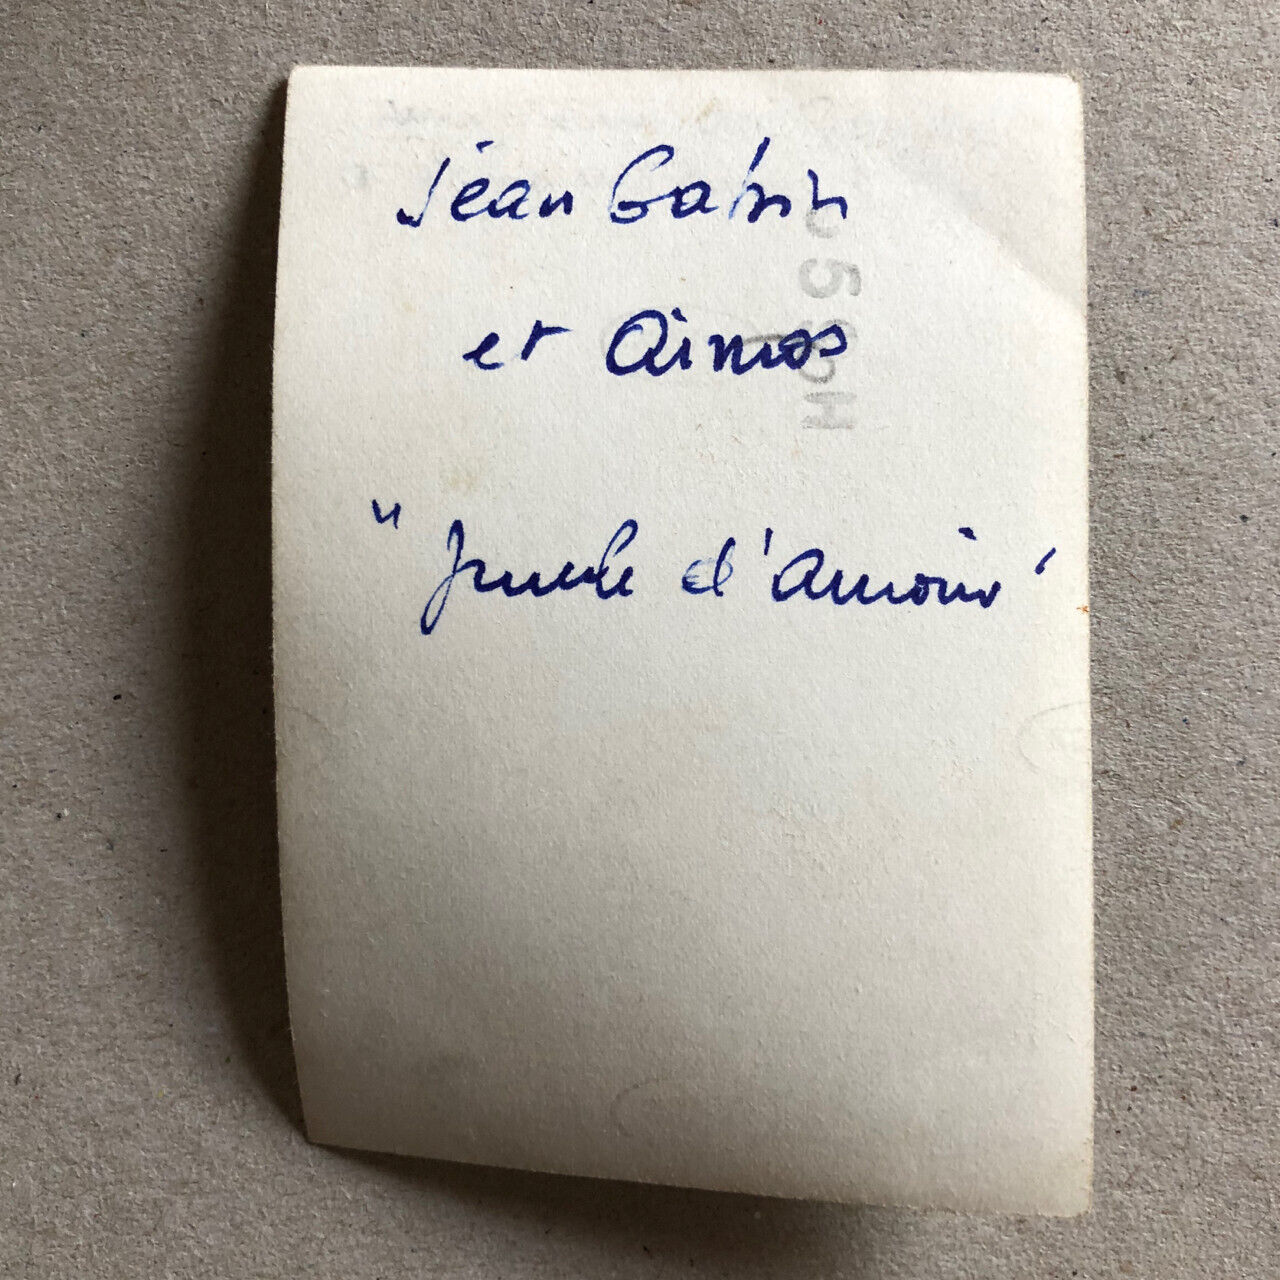 Jean Gabin
et Aimos
" Gueule d'Amour "